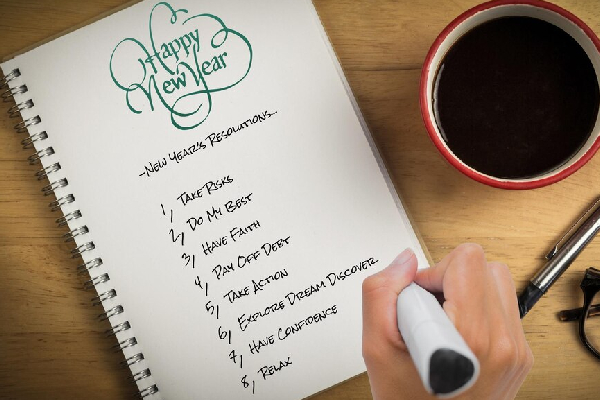 Happy
New Year
-New Year's Resolutions...
1, Take Risks
2, Do My Best
3, Have Faith
4, Pay Off Debt
5, Take Action
6, Explore Dream Discover
7, Have Confidence
8, Relax